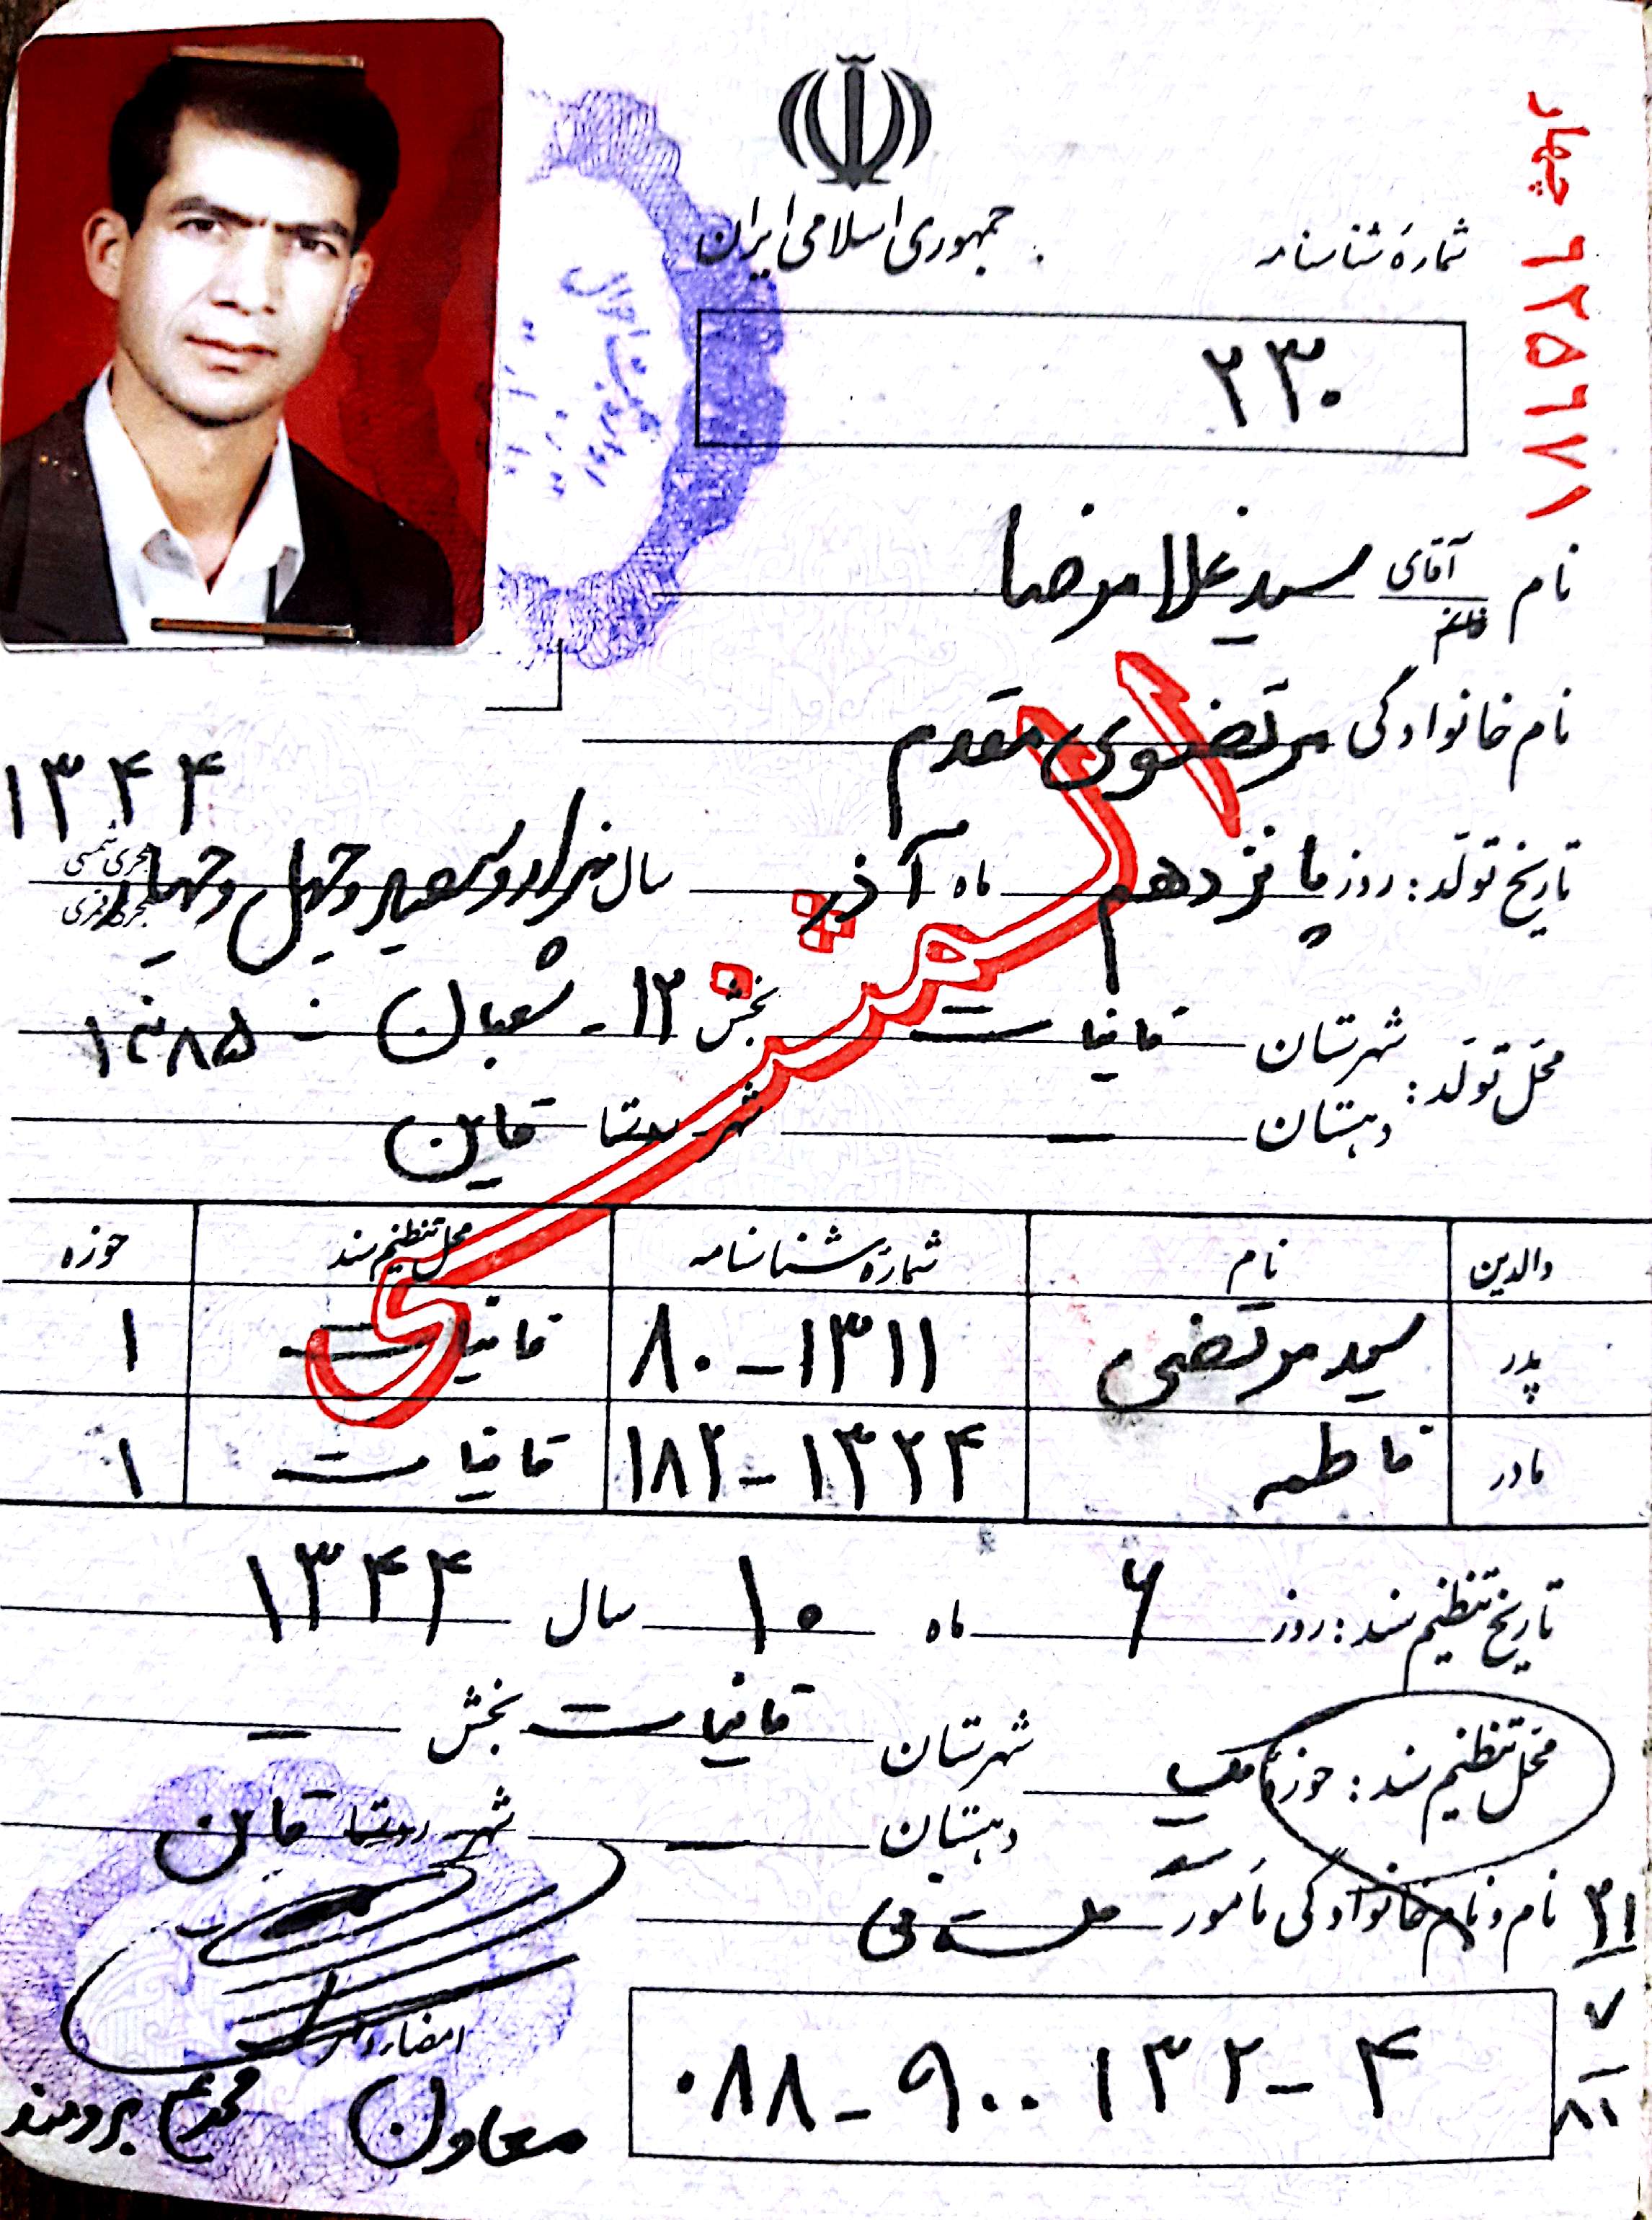 جمهوری اسلامی ایران
شمارهٔ شناسنامه
۲۳۰
چهار ۶۲۵۶۷۱
نام آقای خانم سید غلامرضا
نام خانوادگی مرتضوی مقدم
۱۳۴۴
تاریخ تولد: روز پانزدهم ماه آذر سال هزار و سیصد و چهل و چهار هجری شمسی هجری قمری
محل تولد: شهرستان قائنات بخش ۱۲ - شعبان - ۱۳۸۵
دهستان — شهر روستا قاین
والدین نام شمارهٔ شناسنامه محل تنظیم سند حوزه
پدر سید مرتضی ۱۳۱۱-۸۰ قائنات ۱
مادر فاطمه ۱۳۲۴-۱۸۲ قائنات ۱
تاریخ تنظیم سند: روز ۶ ماه ۱۰ سال ۱۳۴۴
محل تنظیم سند: حوزهٔ یک شهرستان قائنات بخش —
دهستان — شهر روستا قاین
نام و نام خانوادگی مأمور
المثنی
امضاء و مهر
۰۸۸-۹۰۰۱۳۲-۴
معاون